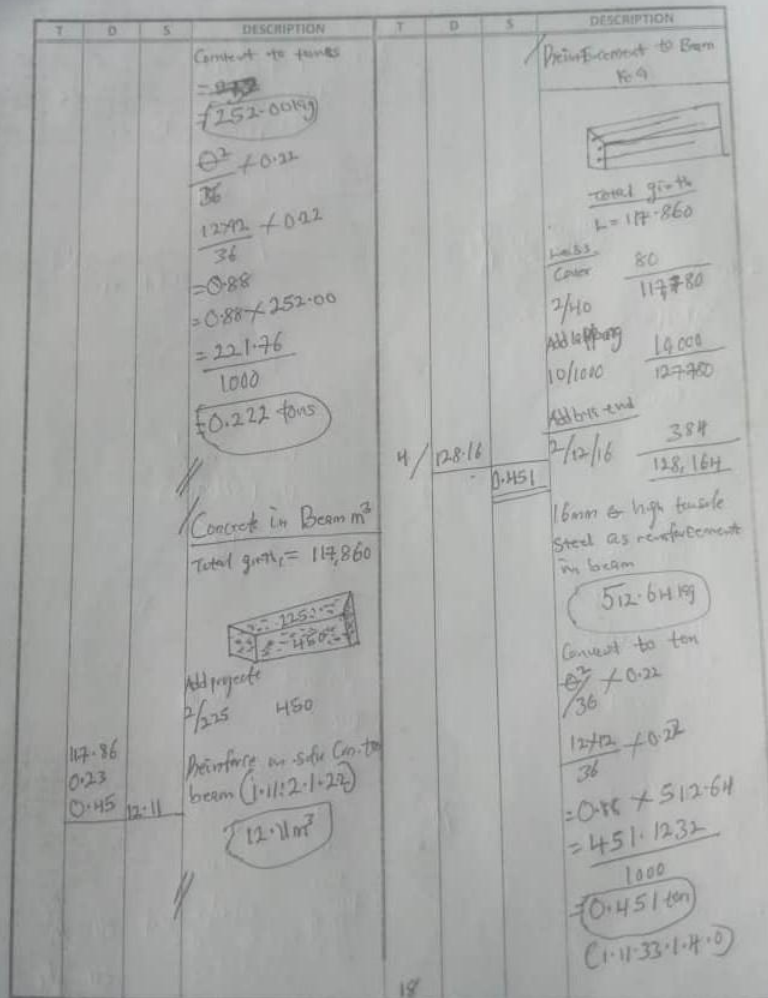 T D S DESCRIPTION T D S DESCRIPTION
Convert to tones
=252.00kg
θ²/36 × 0.22
12×12/36 × 0.22
=0.88
=0.88 × 252.00
=221.76
1000
=0.222 tons
Concrete in Beam m³
Total girth, = 117,860
225
450
Add
2/225 450
117.86
0.23
0.45 12.11
beam (1.11:2.1.22)
12.11m³
to Beam
Total girth
L = 117.860
Less
Cover 80
2/40 117,780
Add lapping 10,000
10/1000 127780
Add end
2/12/16 384
4/ 128.16
128,164
0.451
16mm high tensile
steel as reinforcement
in beam
512.64kg
Convert to ton
θ²/36 × 0.22
12×12/36 × 0.22
=0.88 × 512.64
=451.1232
1000
=0.451 ton
(1.11.33.1.4.0)
18